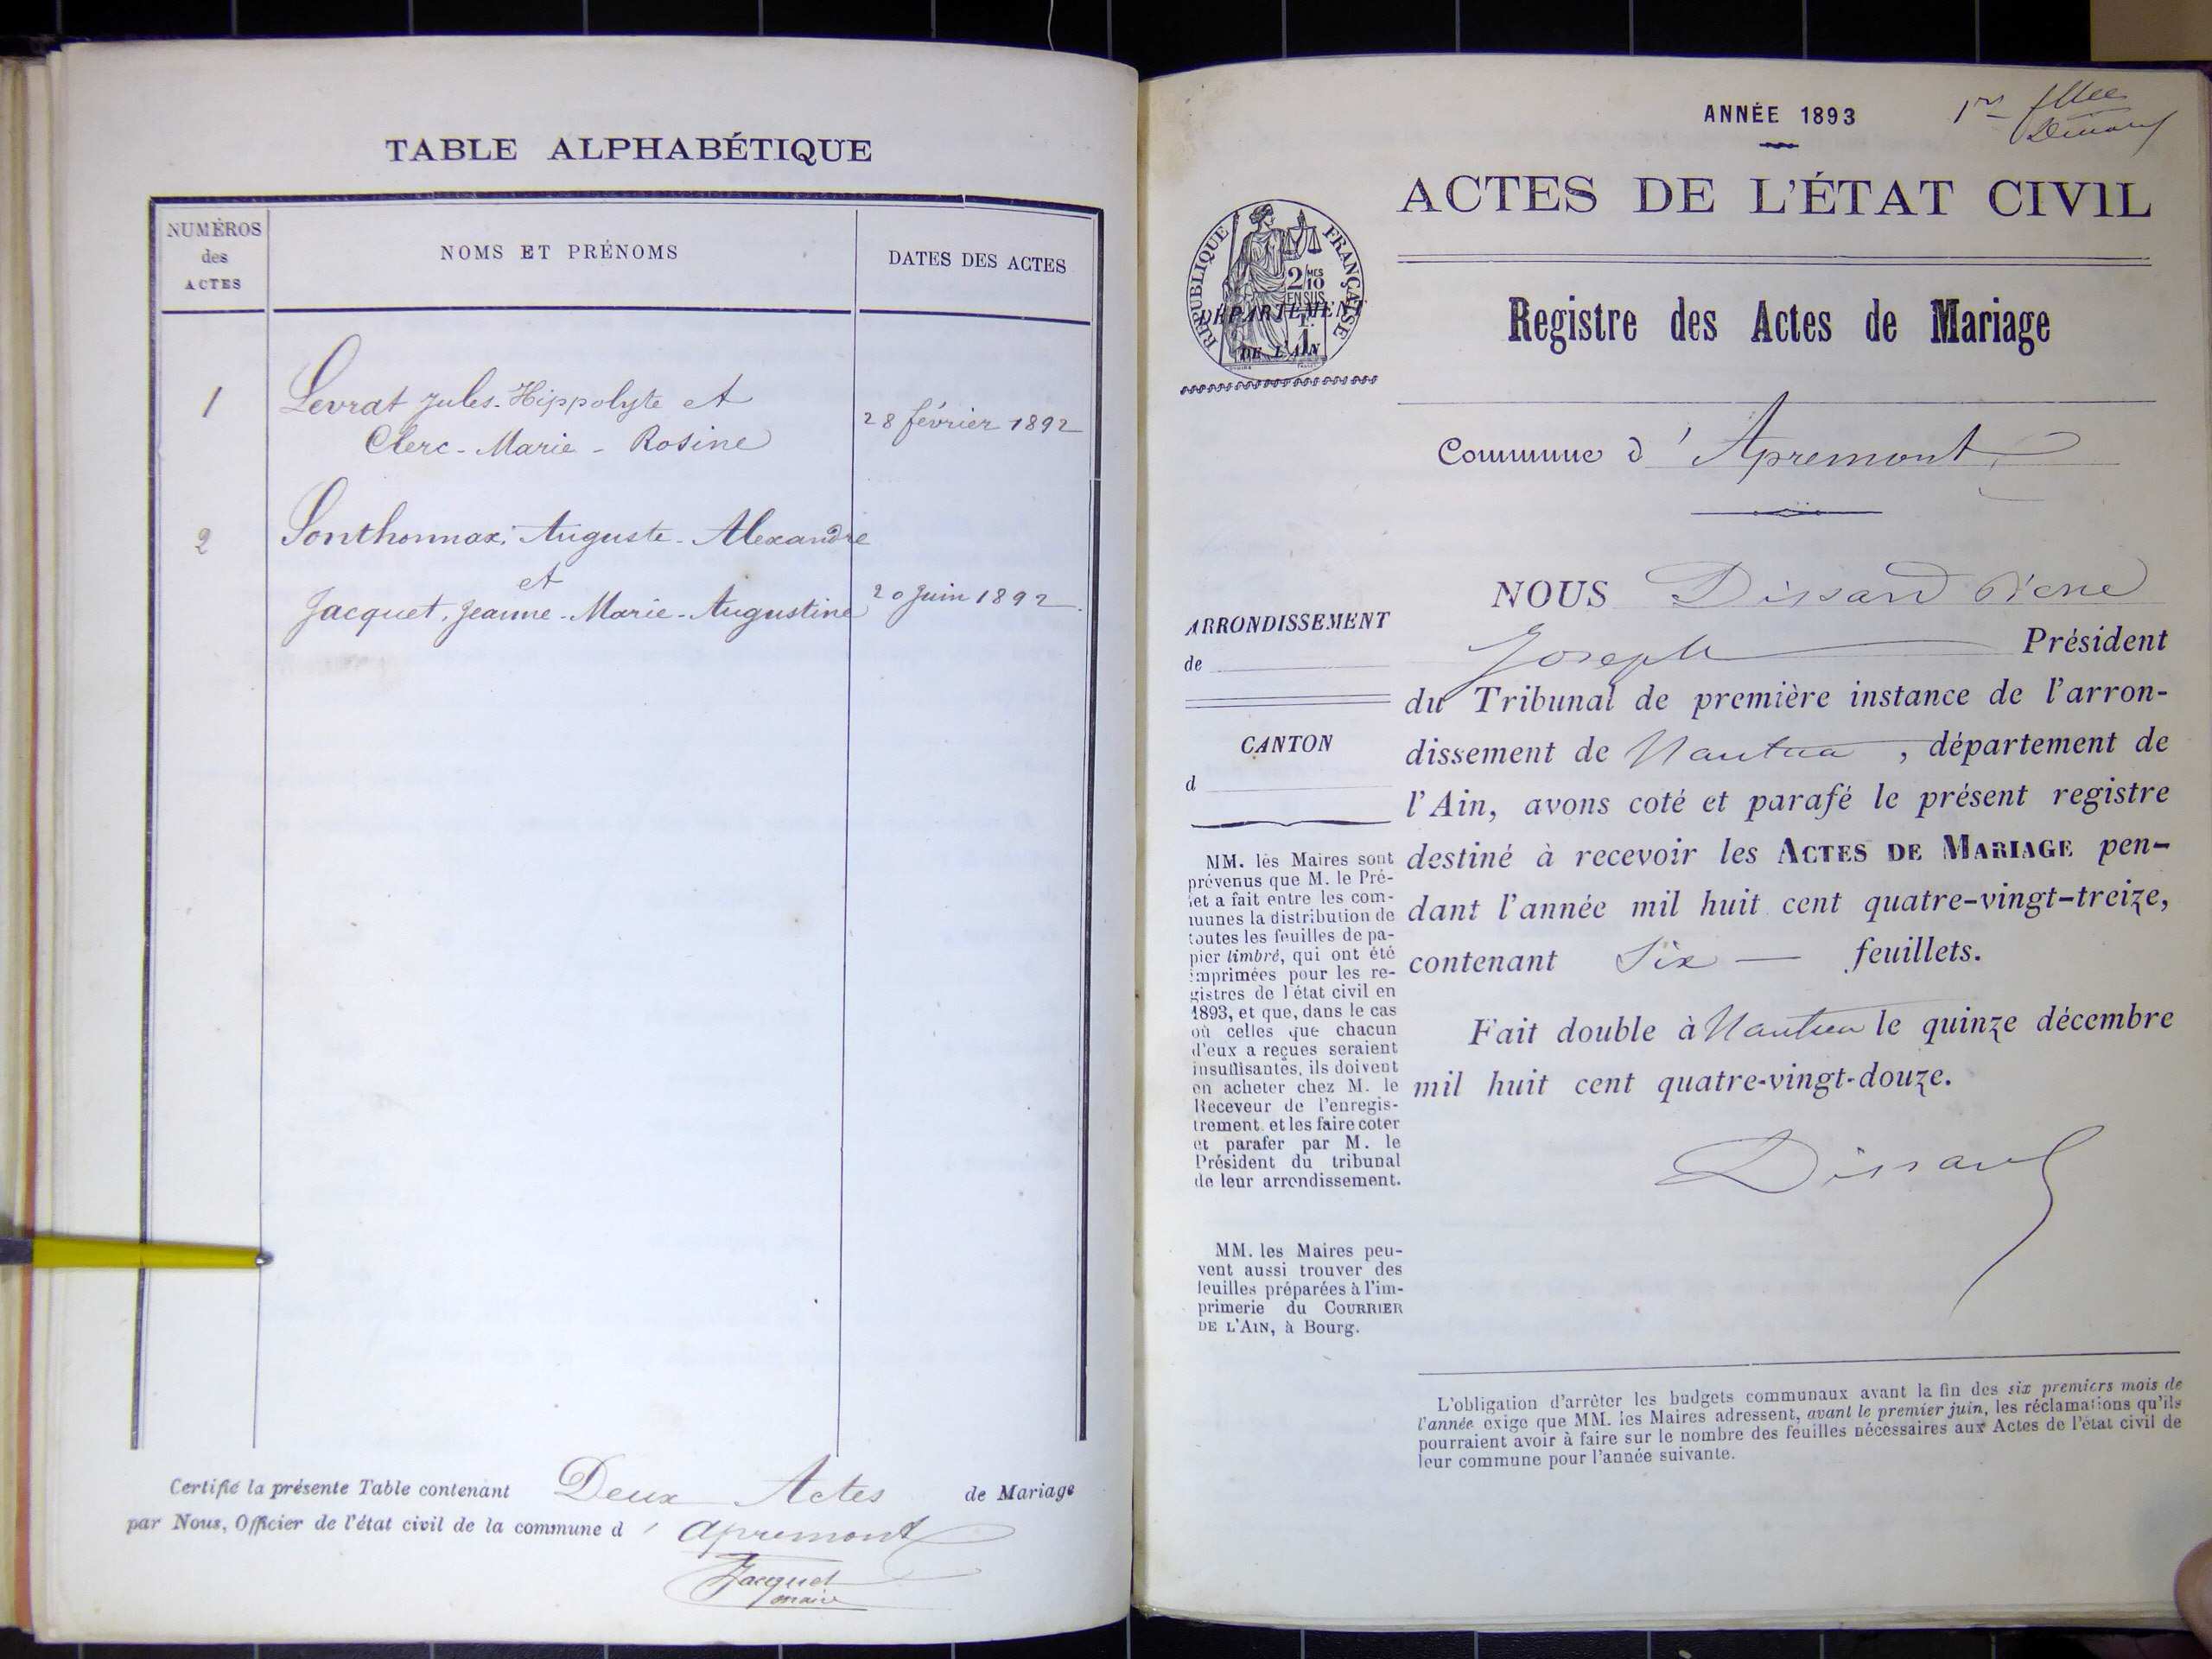 TABLE ALPHABÉTIQUE
NUMÉROS
des
ACTES
NOMS ET PRÉNOMS
DATES DES ACTES
1
Levrat Jules-Hippolyte et
Clerc-Marie-Rosine
28 février 1892
2
Sonthonnax, Auguste-Alexandre
et
Jacquet, Jeanne-Marie-Augustine
20 Juin 1892
Certifié la présente Table contenant Deux Actes de Mariage
par Nous, Officier de l'état civil de la commune d' Apremont
Jacquet
maire
ANNÉE 1893
ACTES DE L'ÉTAT CIVIL
RÉPUBLIQUE FRANÇAISE
2/10 MES
EN SUS
DÉPARTEMENT
1F.
DE L'AIN
Registre des Actes de Mariage
Commune d'Apremont
ARRONDISSEMENT
de
CANTON
d
MM. les Maires sont
prévenus que M. le Pré-
fet a fait entre les com-
munes la distribution de
toutes les feuilles de pa-
pier timbré, qui ont été
imprimées pour les re-
gistres de l'état civil en
1893, et que, dans le cas
où celles que chacun
d'eux a reçues seraient
insuffisantes, ils doivent
en acheter chez M. le
Receveur de l'enregis-
trement et les faire coter
et parafer par M. le
Président du tribunal
de leur arrondissement.
MM. les Maires peu-
vent aussi trouver des
feuilles préparées à l'im-
primerie du COURRIER
DE L'AIN, à Bourg.
NOUS Dissard
Joseph Président
du Tribunal de première instance de l'arron-
dissement de Nantua, département de
l'Ain, avons coté et parafé le présent registre
destiné à recevoir les ACTES DE MARIAGE pen-
dant l'année mil huit cent quatre-vingt-treize,
contenant Six — feuillets.
Fait double à Nantua le quinze décembre
mil huit cent quatre-vingt-douze.
Dissard
L'obligation d'arrêter les budgets communaux avant la fin des six premiers mois de
l'année exige que MM. les Maires adressent, avant le premier juin, les réclamations qu'ils
pourraient avoir à faire sur le nombre des feuilles nécessaires aux Actes de l'état civil de
leur commune pour l'année suivante.